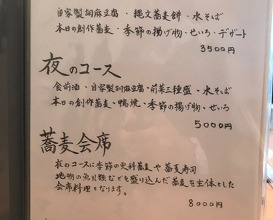 自家製胡麻豆腐・縄文蕎麦餅・水そば
本日の創作蕎麦・季節の揚げ物・せいろ・デザート
3500円
夜のコース
食前酒・自家製胡麻豆腐・前菜三種盛・水そば
本日の創作蕎麦・鴨焼・季節の揚げ物・せいろ
5000円
蕎麦会席
夜のコースに季節の変料蕎麦や蕎麦寿司
地物の魚貝類などを盛り込んだ蕎麦を主体とした
会席料理となります。
8000円